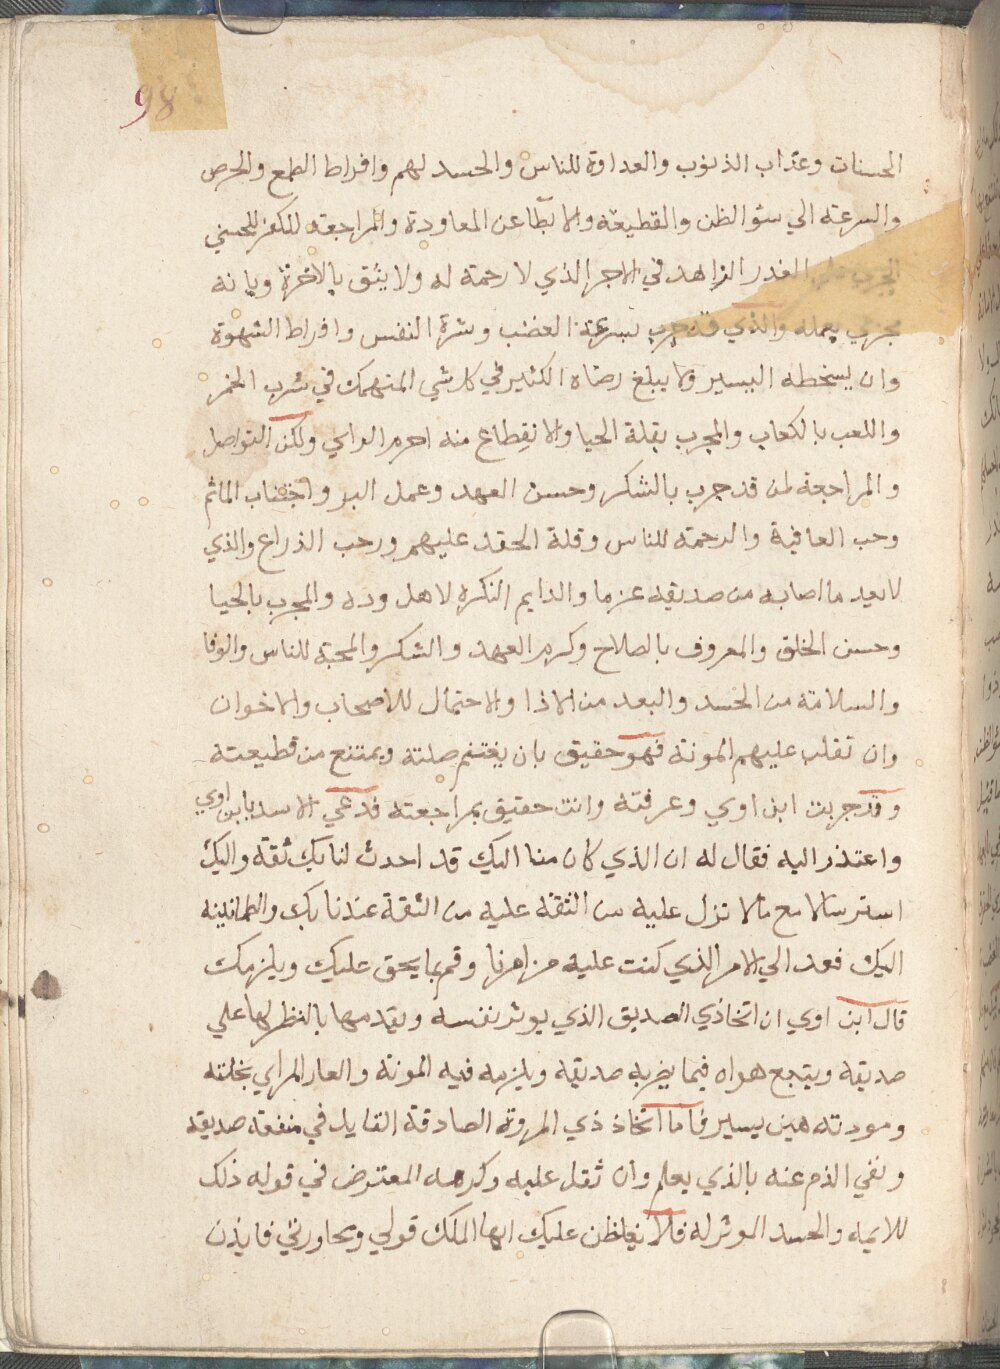 98
الحسنات وعذاب الذنوب والعداوة للناس والحسد لهم وافراط الطمع والحرص
والسرعة الي سؤ الظن والقطيعة والابطا عن المعاودة والمراجعة للكفر للحسني
الغدر الزاهد في الاجر الذي لا رحمة له ولا يثق بالاخرة وبانه
مجزي بعمله والذي قد جرب بسرعة الغضب وشرة النفس وافراط الشهوة
وان يسخطه اليسير ولا يبلغ رضاه الكثير في كل شي المنهمك في شرب الخمر
واللعب بالكعاب والمجرب بقلة الحيا والانقطاع منه احزم الراي ولكن التواصل
والمراجعة لمن قد جرب بالشكر وحسن العهد وعمل البر واجتناب الماثم
وحب العافية والرحمة للناس وقلة الحقد عليهم ورحب الذراع والذي
لا يعد ما اصابه من صديقه غرما والدايم النكرة لاهل وده والمجرب بالحيا
وحسن الخلق والمعروف بالصلاح وكرم العهد والشكر والمحبة للناس والوفا
والسلامة من الحسد والبعد من الاذا والاحتمال للاصحاب والاخوان
وان تقلب عليهم المونة فهو حقيق بان يغتنم صلته ويمتنع من قطيعته
وقد جربت ابن اوي وعرفته وانت حقيق بمراجعته فدعي الاسد بابن اوي
واعتذر اليه فقال له ان الذي كان منا اليك قد احدث لنا بك ثقة واليك
استرسالا مع مالا تزل عليه من الثقة عليه من الثقة عندنا بك والطمانينه
اليك فعد الي الامر الذي كنت عليه من امرنا وقم بما يحق عليك ويلزمك
قال ابن اوي ان اتخاذي الصديق الذي يوثر نفسه ويقدمها بالنظر لها علي
صديقه ويتبع هواه فيما يضر به صديقه ويلزمه فيه المونة والعار المراي بخلته
ومودته هين يسير فاما اتخاذ ذي المروة الصادقة القايل في منفعة صديقه
ونفي الذم عنه بالذي يعلم وان ثقل عليه وكرهه المعترض في قوله ذلك
للايمه والحسد الموثر له فلا يغلظن عليك ايها الملك قولي ومحاورتي فايذن